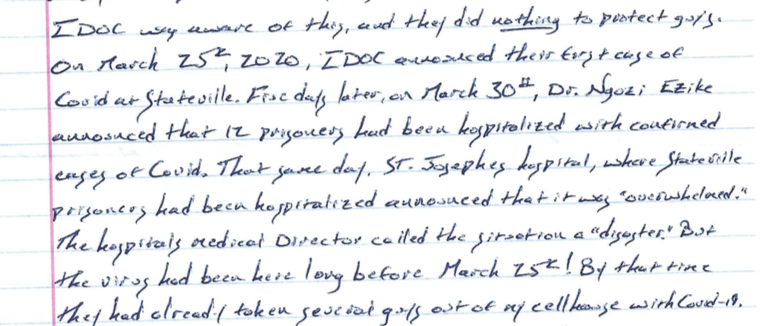 IDOC was aware of this, and they did nothing to protect guys.
On March 25th, 2020, IDOC announced their first case of
Covid at Stateville. Five days later, on March 30th, Dr. Ngozi Ezike
announced that 12 prisoners had been hospitalized with confirmed
cases of Covid. That same day, St. Josephes hospital, where Stateville
prisoners had been hospitalized announced that it was "overwhelmed."
The hospitals medical Director called the situation a "disaster." But
the virus had been here long before March 25th! By that time
they had already taken several guys out of my cellhouse with Covid-19.